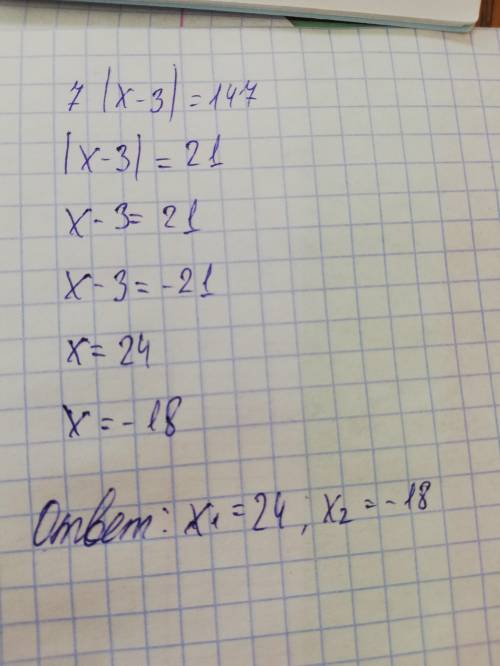 7 |x-3| = 147
|x-3| = 21
x-3 = 21
x-3 = -21
x = 24
x = -18
Ответ: x₁ = 24, x₂ = -18